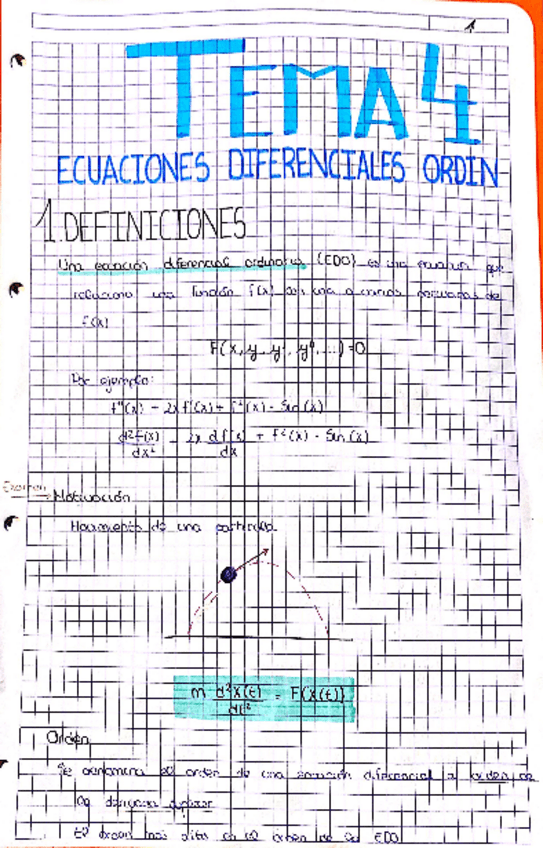 1
TEMA 4
ECUACIONES DIFERENCIALES ORDIN
1. DEFINICIONES
Una ecuación diferencial ordinaria (EDO) es una ecuación que
relaciona una función f(x) con una o varias derivadas de
f(x)
F(x, y, y', y'', ...) = 0
Por ejemplo:
f''(x) - 2x f'(x) + f²(x) = Sin(x)
d²f(x)/dx² - 2x df(x)/dx + f²(x) = Sin(x)
Examen
Motivación
Movimiento de una partícula
m d²x(t)/dt² = F(x(t))
Orden
Se denomina el orden de una ecuación diferencial a orden de
la derivada superior
El orden más alto es el orden de la EDO